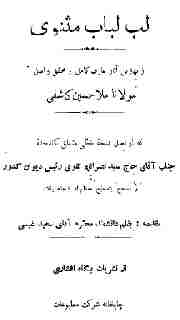 لب لباب مثنوی
از بهترین آثار عارف کامل و محقق واصل
مولانا ملاحسین کاشفی
که از اصل نسخهٔ خطی متعلق کتابخانهٔ
جناب آقای حاج سید نصرالله تقوی رئیس دیوان کشور
مقدمه بقلم دانشمند محترم آقای سعید نفیسی
از نشریات بنگاه افشاری
چاپخانه شرکت مطبوعات